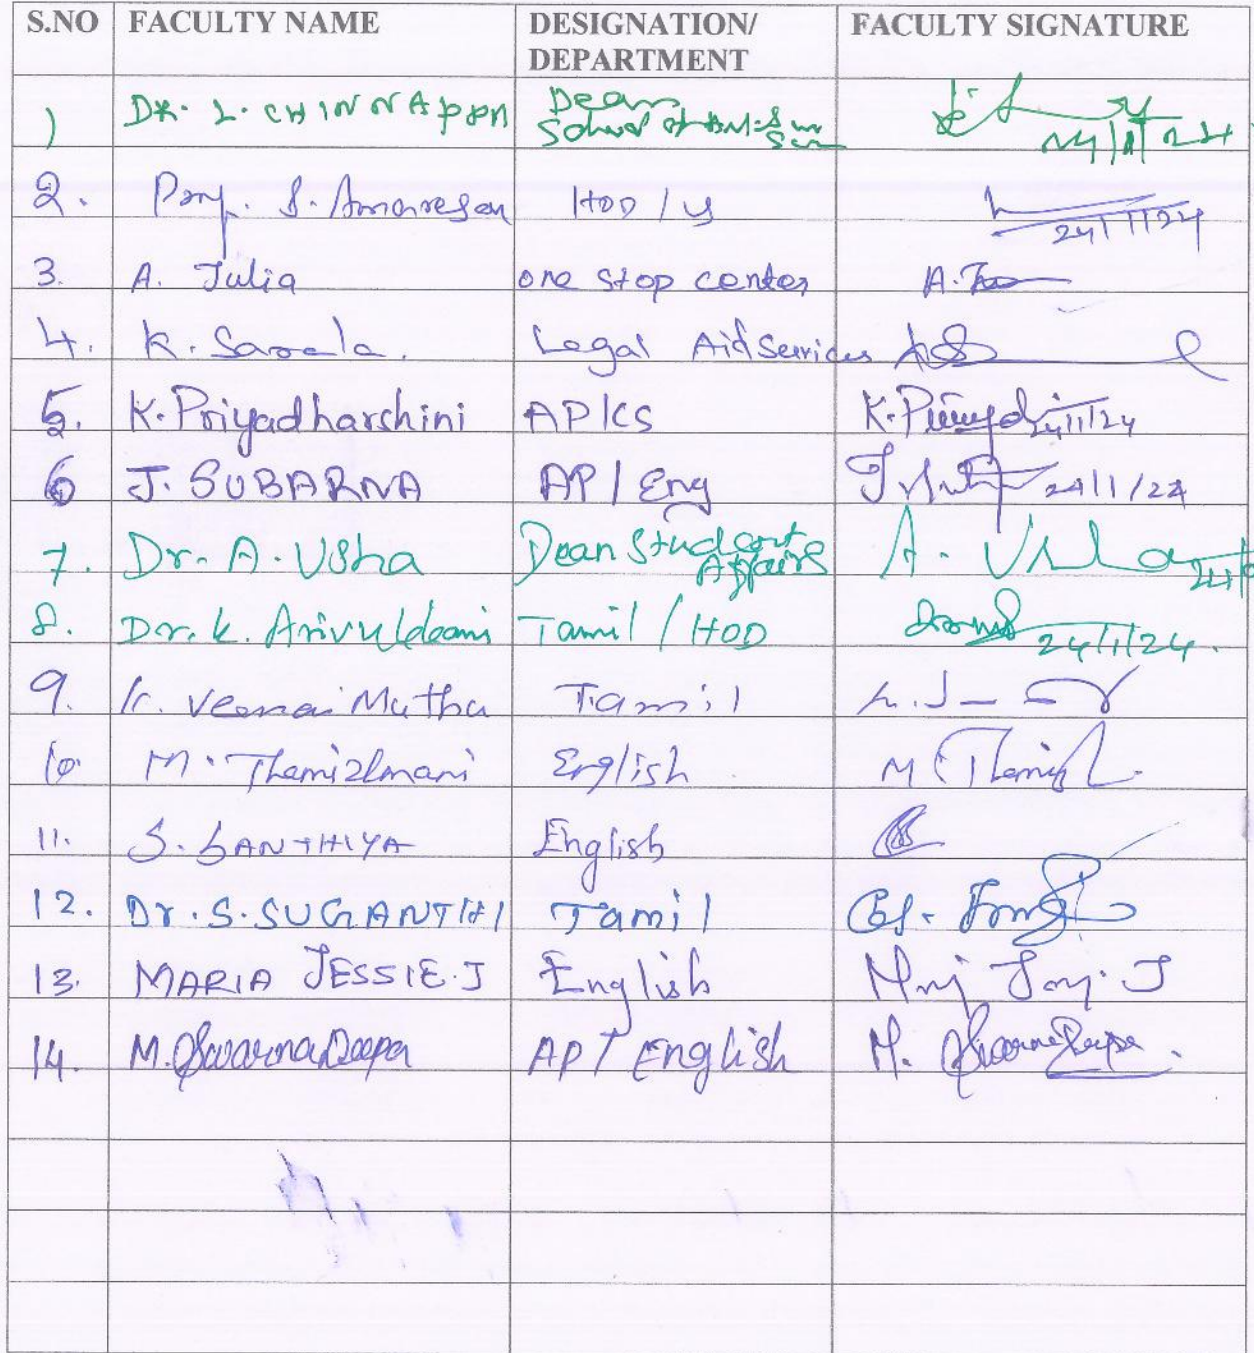 S.NO FACULTY NAME DESIGNATION/ DEPARTMENT FACULTY SIGNATURE
1) DR. L. CHINNAPPAN Dean School of 24/1/24
2. Prof. S. Amaresan HOD / 24/1/24
3. A. Julia one stop center A.
4. K. Sarala. Legal Aid Services
5. K. Priyadharshini AP/CS K. 24/1/24
6 J. SUBARNA AP / Eng 24/1/24
7. Dr. A. Usha Dean Student Affairs A. Usha
8. Dr. K. Tamil / HOD 24/1/24.
9. Mutha Tamil
10. M. Thamizlmani English M
11. S. SANTHIYA English
12. Dr. S. SUGANTHI Tamil
13. MARIA JESSIE. J English J
14. M. Swarna Deepa AP / English M. Swarna Deepa.